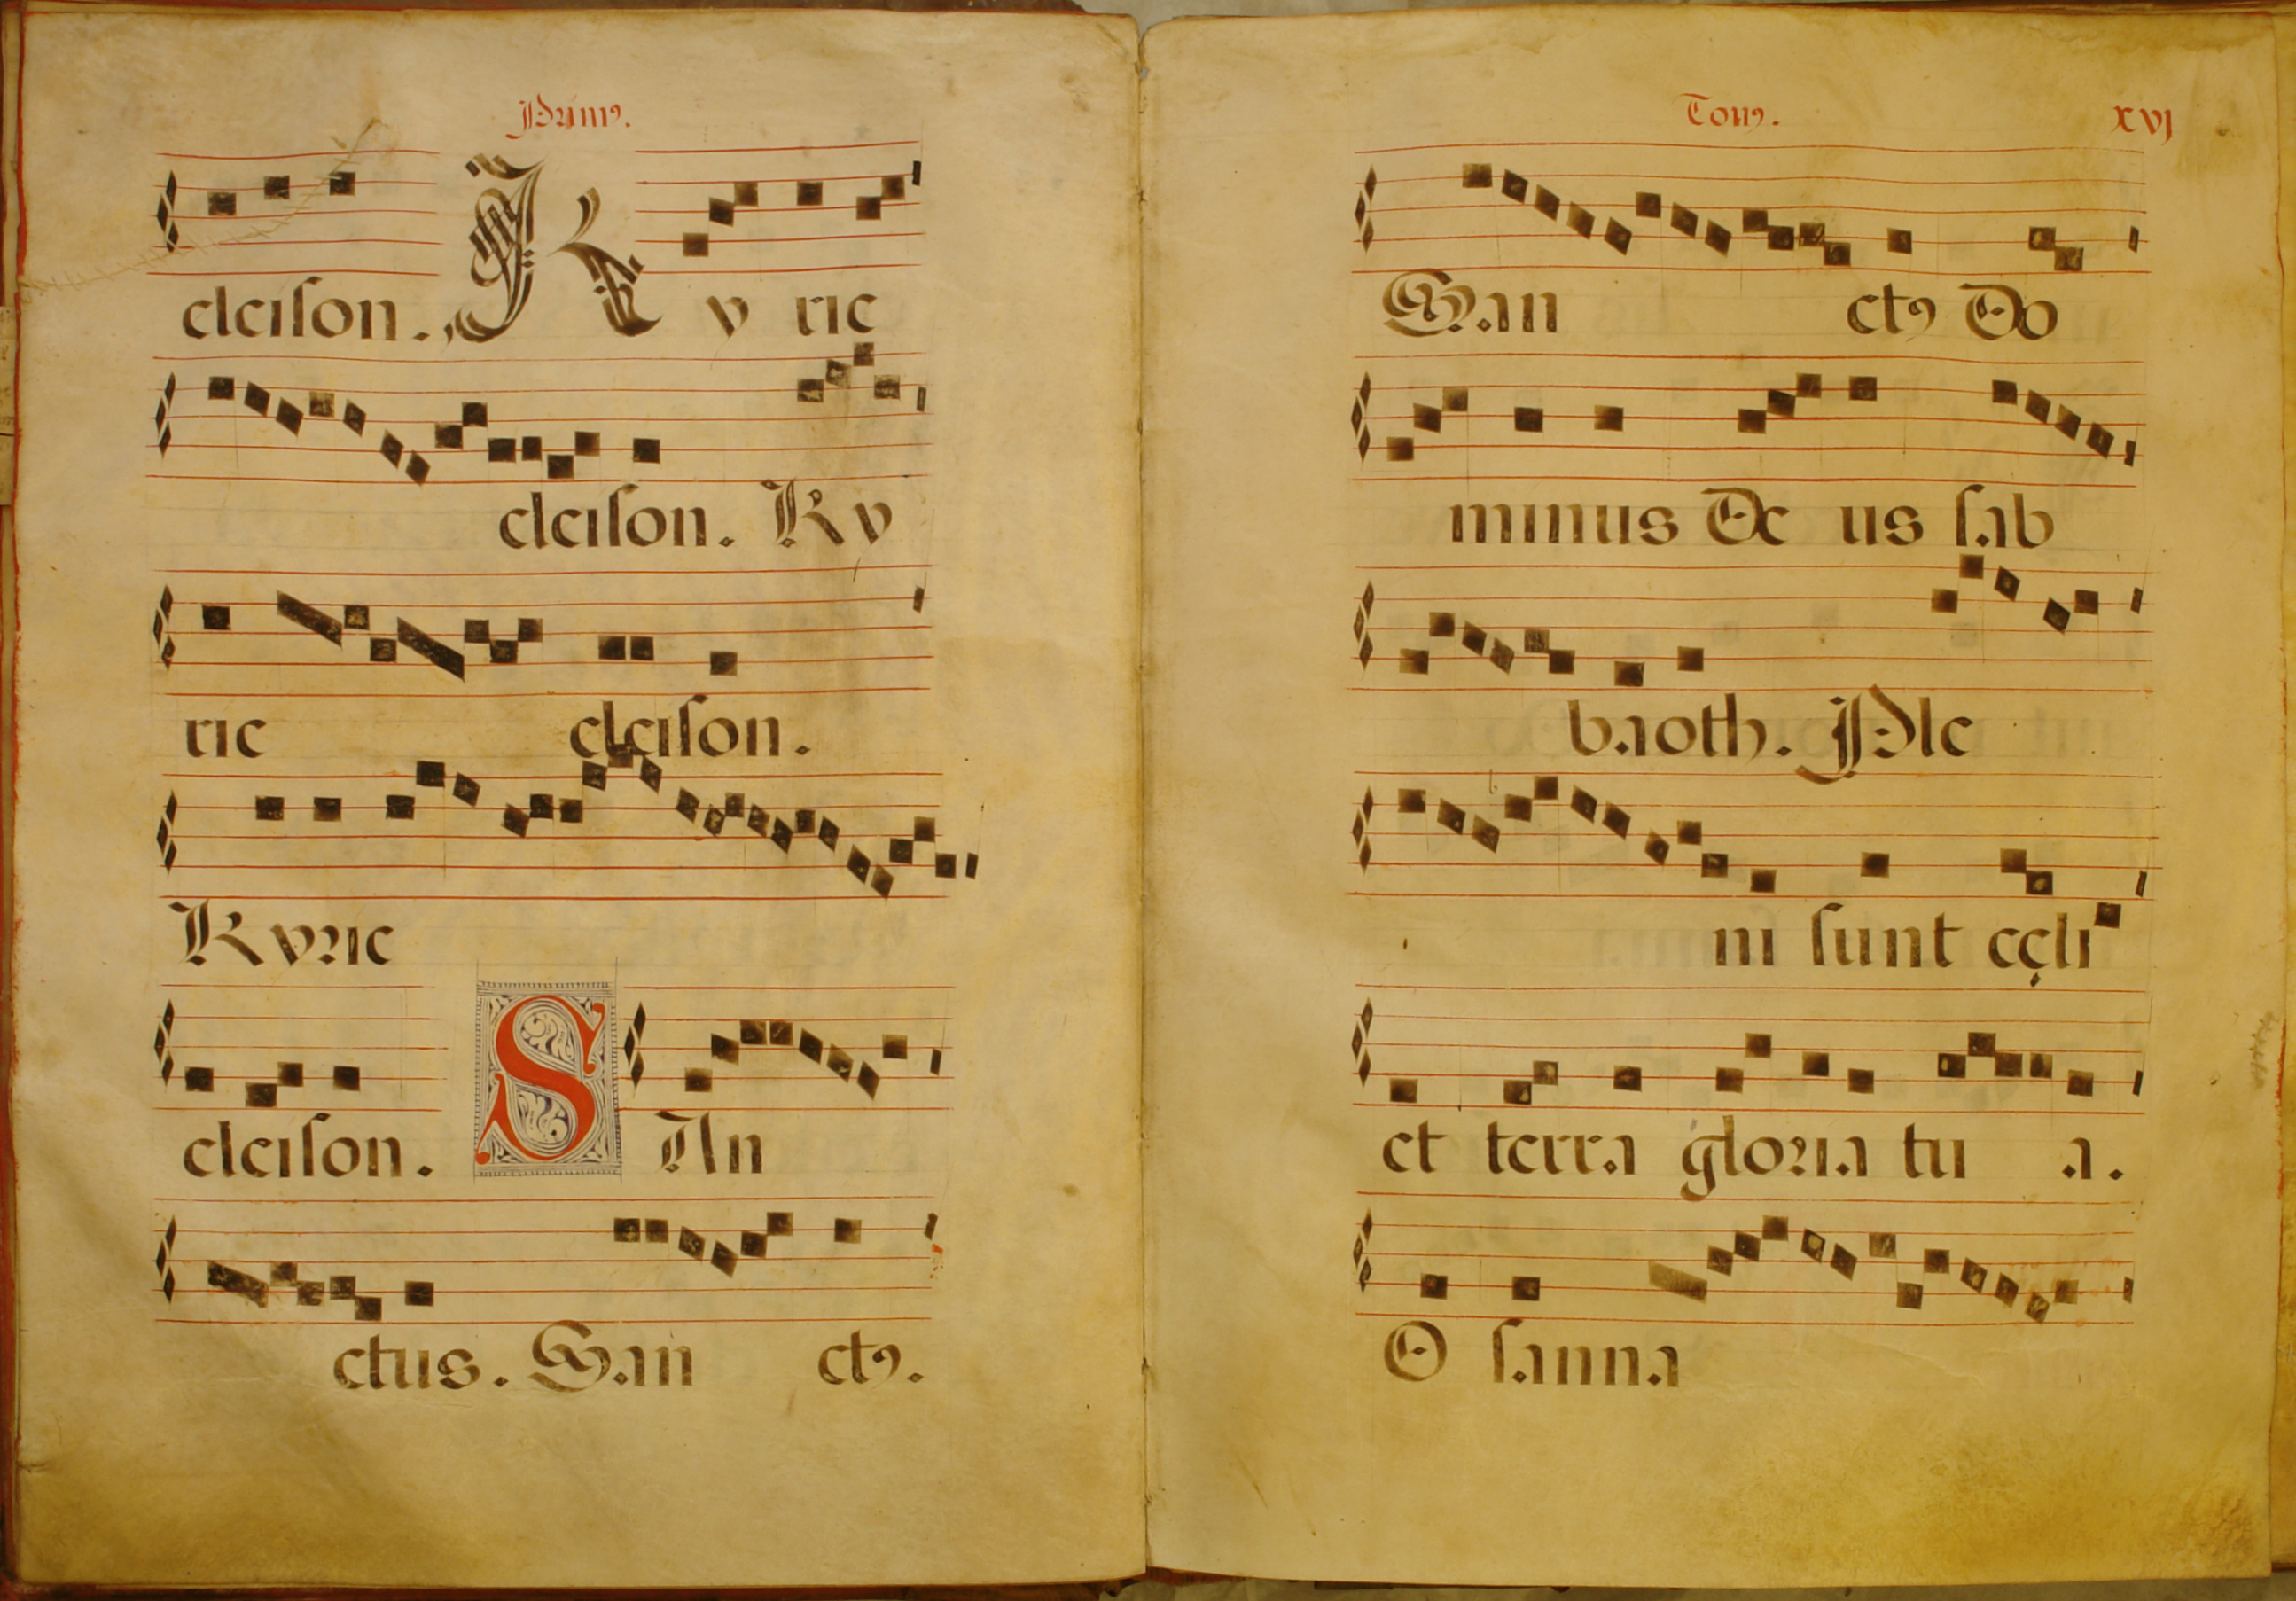 Primꝰ.
eleison. Ky rie
eleison. Ky
rie eleison.
Kyrie
eleison. SAn
ctus. San ctꝰ.
Tonꝰ. xvj
San ctꝰ Do
minus De us sab
baoth. Ple
ni sunt cęli
et terra gloria tu a.
O sanna